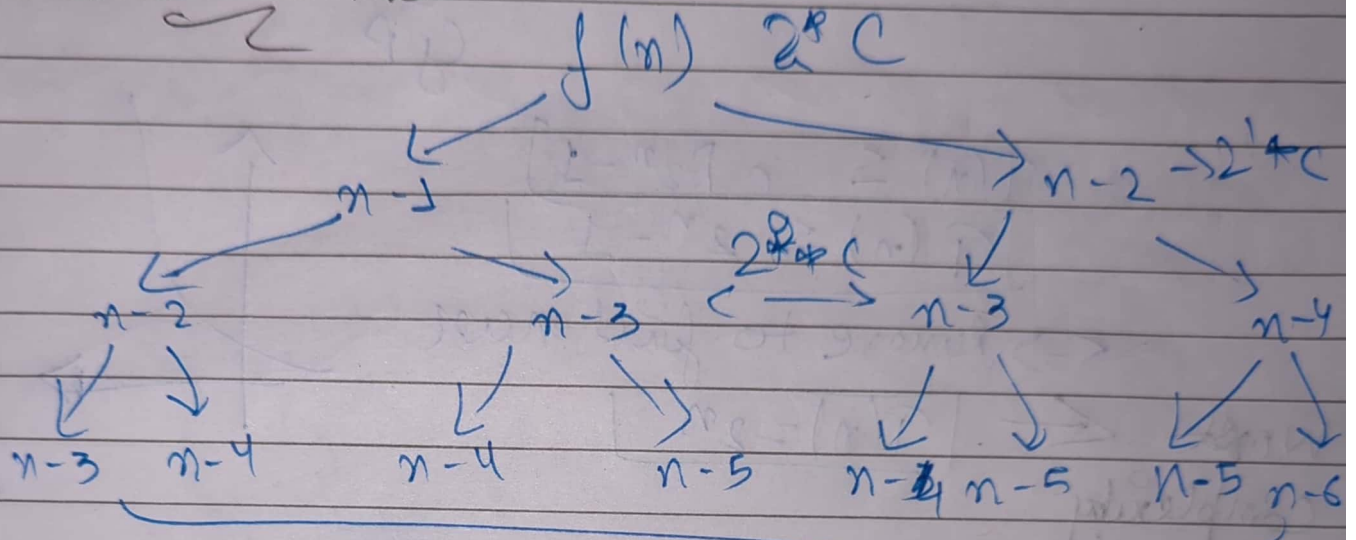 f(n) 2 * C
n-1 n-2 → 2^1 * C
2 * C
n-2 n-3 ← → n-3 n-4
n-3 n-4 n-4 n-5 n-4 n-5 n-5 n-6